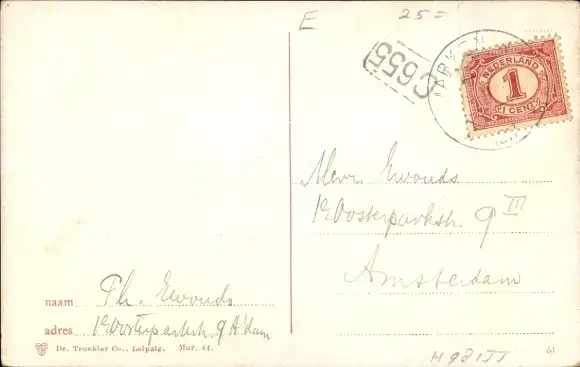 E
25=
C655
NEDERLAND
1
1 CENT
Mevr. Ewouds
1e Oosterparkstr. 9 III
Amsterdam
naam Th. Ewouds
adres 1e Oosterparkstr. 9 A'dam
Dr. Trenkler Co., Leipzig. Mar. 44.
61